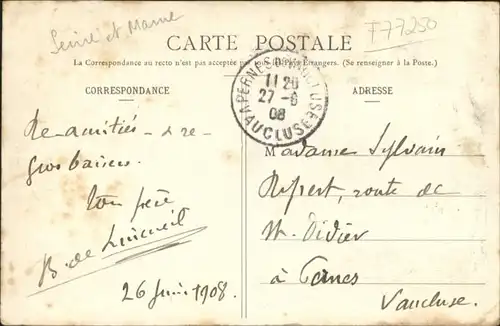 Seine et Marne
F77250
CARTE POSTALE
La Correspondance au recto n'est pas acceptée par tous les Pays Étrangers. (Se renseigner à la Poste.)
CORRESPONDANCE
ADRESSE
PERNES
11 20
27 - 6
08
VAUCLUSE
Re-amitiés - & re-
gros baisers.
ton frère
B. de
26 Juin 1908.
Madame Sylvain
route de
St. Didier
à Pernes
Vaucluse.